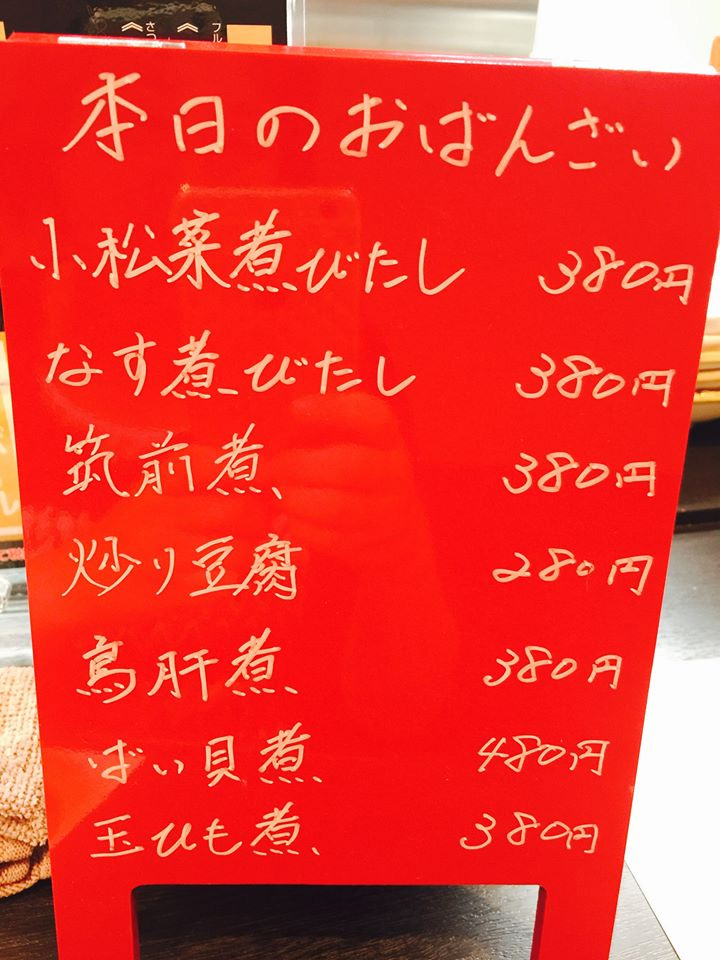 本日のおばんざい
小松菜煮びたし 380円
なす煮びたし 380円
筑前煮 380円
炒り豆腐 280円
鳥肝煮 380円
ばい貝煮 480円
玉ひも煮 380円